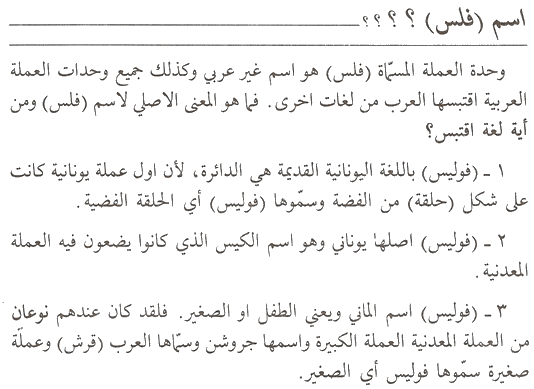 اسم (فلس) ؟ ؟ ؟ ؟
وحدة العملة المسمّاة (فلس) هو اسم غير عربي وكذلك جميع وحدات العملة
العربية اقتبسها العرب من لغات اخرى. فما هو المعنى الاصلي لاسم (فلس) ومن
أية لغة اقتبس؟
١ ـ (فوليس) باللغة اليونانية القديمة هي الدائرة، لأن اول عملة يونانية كانت
على شكل (حلقة) من الفضة وسمّوها (فوليس) أي الحلقة الفضية.
٢ ـ (فوليس) اصلها يوناني وهو اسم الكيس الذي كانوا يضعون فيه العملة
المعدنية.
٣ ـ (فوليس) اسم الماني ويعني الطفل او الصغير. فلقد كان عندهم نوعان
من العملة المعدنية العملة الكبيرة واسمها جروشن وسمّاها العرب (قرش) وعملة
صغيرة سمّوها فوليس أي الصغير.